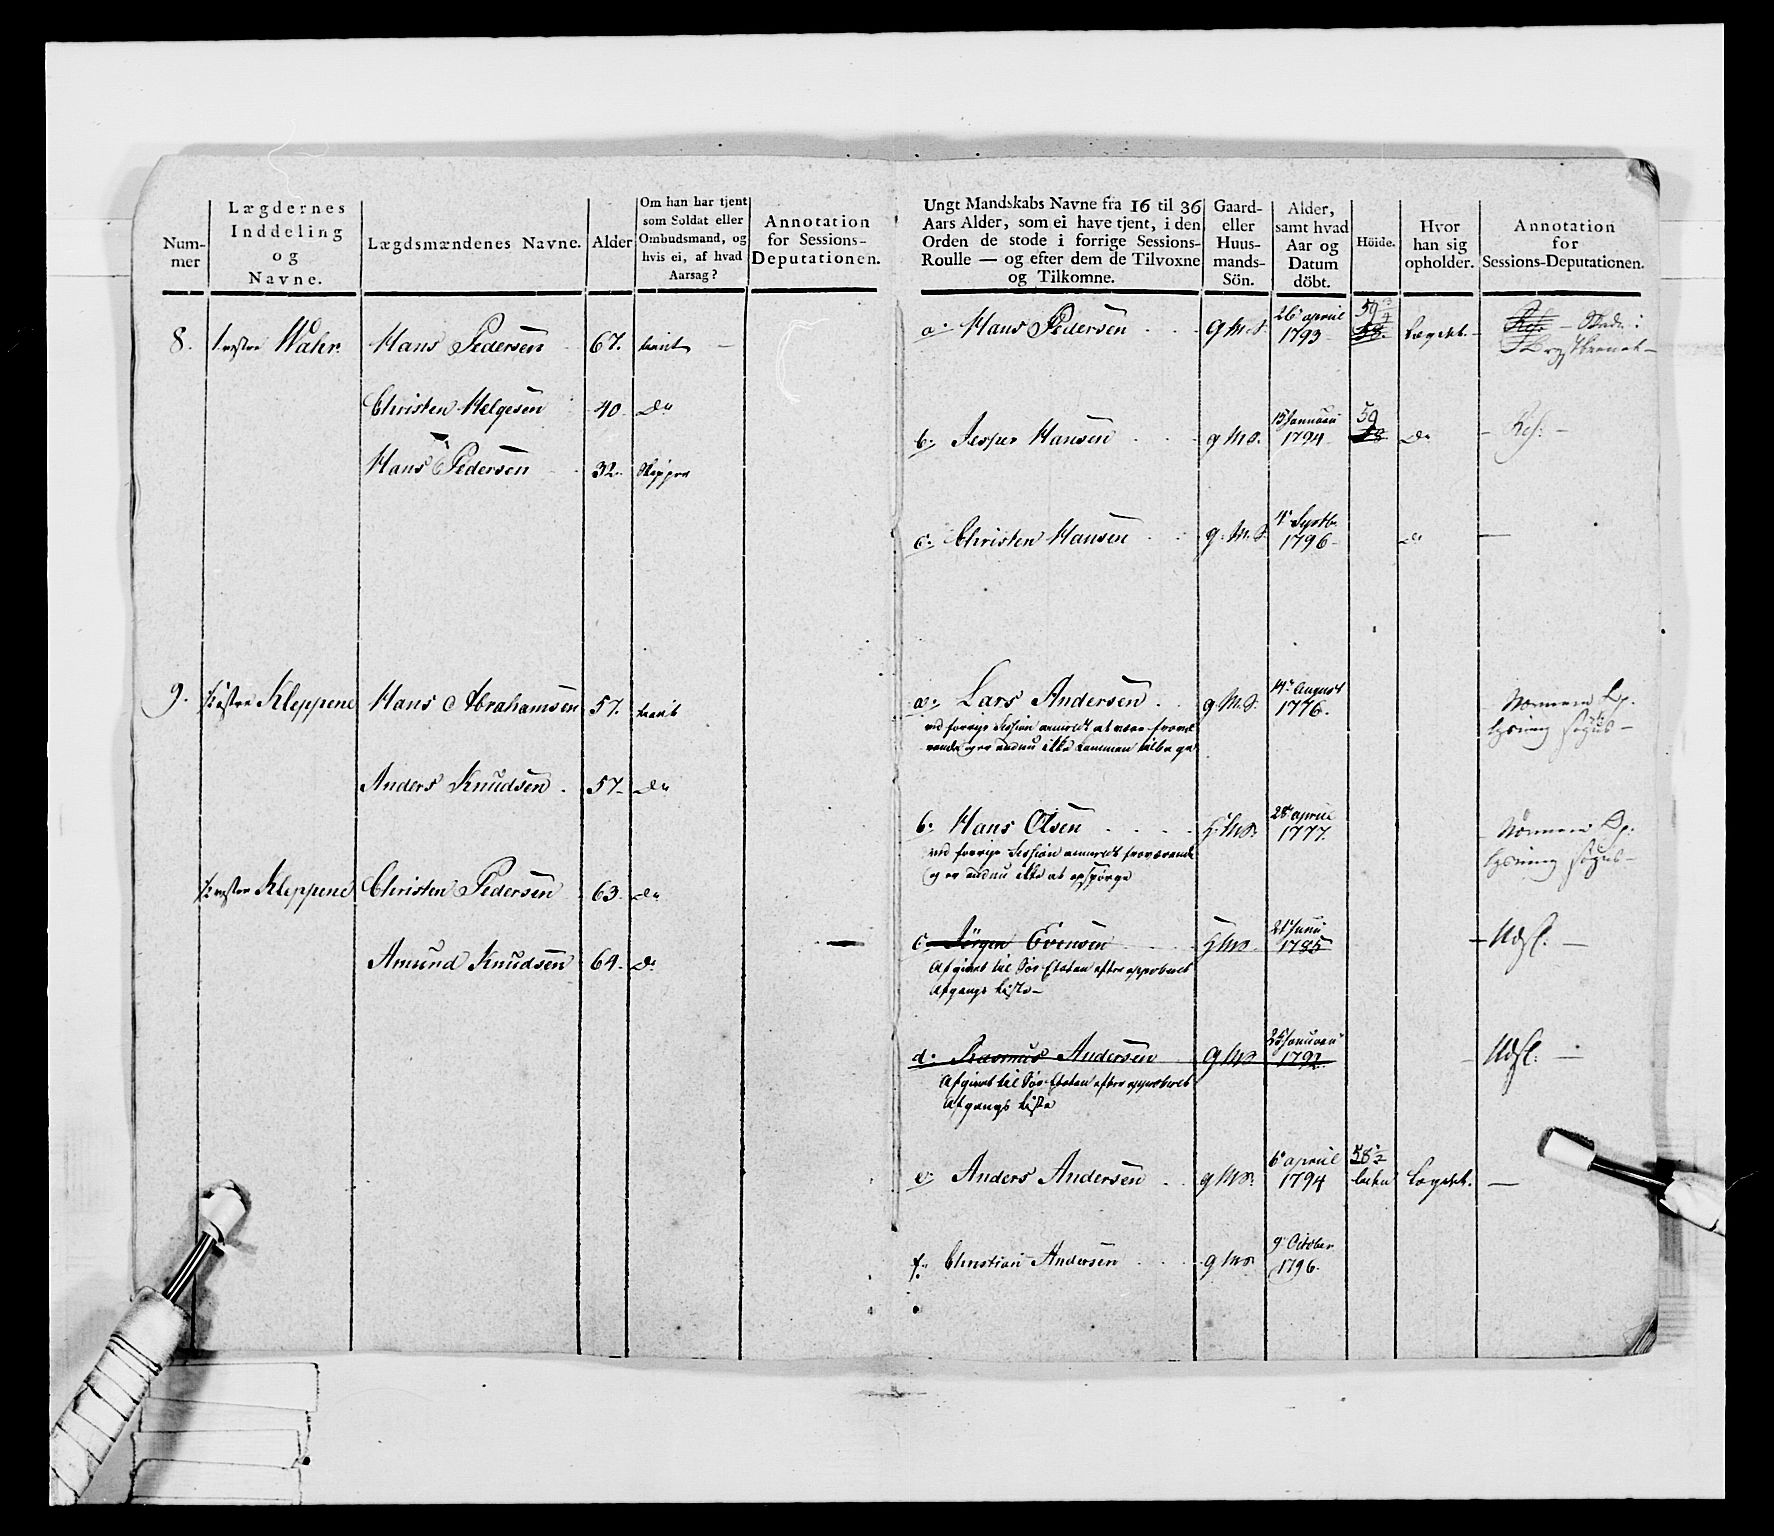 Num-
mer
Lægdernes
Inddeling
og
Navne.
Lægdsmændenes Navne.
Alder
Om han har tjent
som Soldat eller
Ombudsmand, og
hvis ei, af hvad
Aarsag?
Annotation
for Sessions-
Deputationen.
8. Wahr. Hans Pedersen 67. tient —
Christen Helgesen 40. Do
Hans Pedersen 32. Skipper
9. Kleppene Hans Abrahamsen 57. tient
Anders Knudsen . 57. Do
Kleppene Christen Pedersen 63. Do
Amund Knudsen 64. Do
Ungt Mandskabs Navne fra 16 til 36
Aars Alder, som ei have tjent, i den
Orden de stode i forrige Sessions-
Roulle — og efter dem de Tilvoxne
og Tilkomne.
Gaard-
eller
Huus-
mands-
Sön.
Alder,
samt hvad
Aar og
Datum
döbt.
Höide.
Hvor
han sig
opholder.
Annotation
for
Sessions-Deputationen.
26 april
a. Hans Pedersen g M. S. 1793 58. Lægdet.
15 Januari 59
b. Jesper Hansen g M S. 1794 58 Do — Res: —
4 Septb.
c. Christen Hansen g. M. S. 1796 Do —
14 August
a. Lars Andersen . g. M. S. 1776.
ved forrige Session anmeldt at være fravæ
rende og er endnu ikke kommen tilbage
28 april
b. Hans Olsen H M S. 1777.
ved forrige Session anmeldt fraværende
og er endnu ikke at opspörge
21 Juni
c. Jörgen Evensen H M S. 1785 — Udsl. —
Afgivet til Söe-Etaten efter approberet
Afgangs Liste —
25 Januari
d. Rasmus Andersen g M S 1792 — Udsl. —
Afgivet til Söe-Etaten efter approberet
Afgangs Liste
6 april 58½
e. Anders Andersen . g M S. 1794 Lægdet. —
9 October
f. Christian Andersen g M S. 1796.